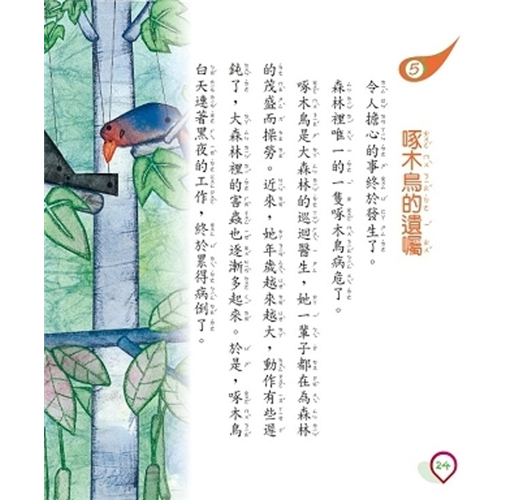 5
啄木鳥的遺囑
令人擔心的事終於發生了。
森林裡唯一的一隻啄木鳥病危了。
啄木鳥是大森林的巡迴醫生，她一輩子都在為森林
的茂盛而操勞。近來，她年歲越來越大，動作有些遲
鈍了，大森林裡的害蟲也逐漸多起來。於是，啄木鳥
白天連著黑夜的工作，終於累得病倒了。
24